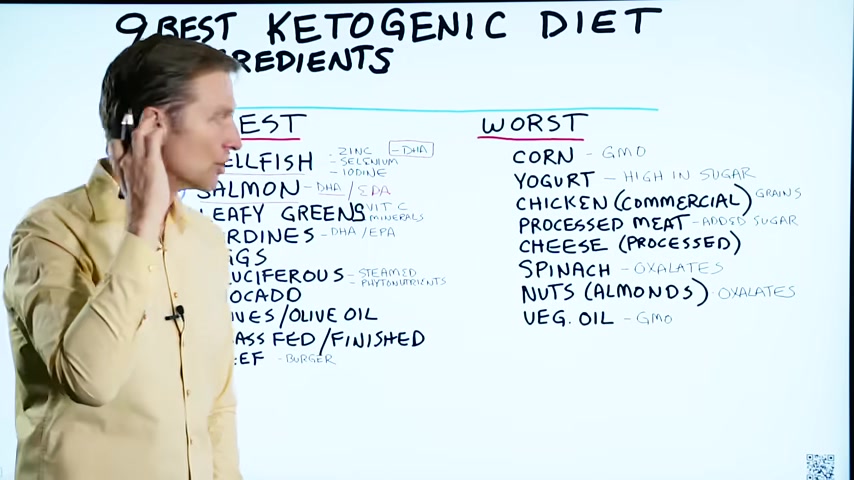 9 BEST KETOGENIC DIET
REDIENTS
EST
ELLFISH - ZINC - DHA
- SELENIUM
- IODINE
SALMON - DHA / EPA
LEAFY GREENS VIT C
MINERALS
RDINES - DHA / EPA
GGS
UCIFEROUS - STEAMED
- PHYTONUTRIENTS
OCADO
IVES / OLIVE OIL
ASS FED / FINISHED
EF - BURGER
WORST
CORN - GMO
YOGURT - HIGH IN SUGAR
CHICKEN (COMMERCIAL) GRAINS
PROCESSED MEAT - ADDED SUGAR
CHEESE (PROCESSED)
SPINACH - OXALATES
NUTS (ALMONDS) - OXALATES
VEG. OIL - GMO